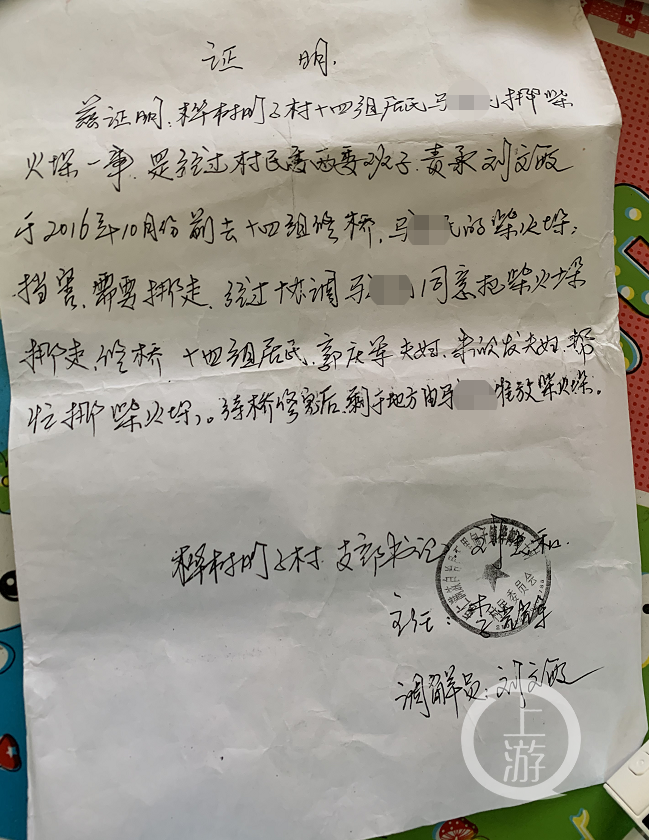 证 明.
兹证明,桦树村门子村十四组居民马 民挪柴
火垛一事,是经过村民委两委班子,责承刘文
于2016年10月份前去十四组修桥,马 民的柴火垛,
挡害,需要挪走,经过协调马 同意把柴火垛
挪走,修桥 十四组居民,郭庆军夫妇, 发夫妇,帮
忙挪柴火垛,。待桥修完后,剩于地方由马 堆放柴火垛。
村 村 支部书记 刘 和.
主任:李
委员会
调解员:刘文
上游